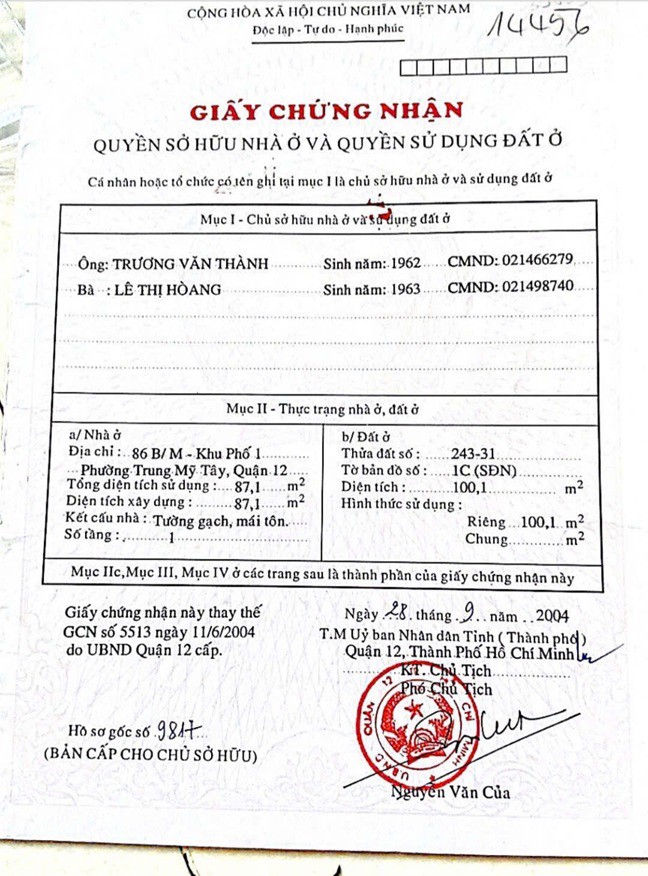 CỘNG HÒA XÃ HỘI CHỦ NGHĨA VIỆT NAM
Độc lập - Tự do - Hạnh phúc
14456
GIẤY CHỨNG NHẬN
QUYỀN SỞ HỮU NHÀ Ở VÀ QUYỀN SỬ DỤNG ĐẤT Ở
Cá nhân hoặc tổ chức có tên ghi tại mục I là chủ sở hữu nhà ở và sử dụng đất ở
Mục I - Chủ sở hữu nhà ở và sử dụng đất ở
Ông: TRƯƠNG VĂN THÀNH Sinh năm: 1962 CMND: 021466279
Bà : LÊ THỊ HÒANG Sinh năm: 1963 CMND: 021498740
Mục II - Thực trạng nhà ở, đất ở
a/ Nhà ở
Địa chỉ : 86 B/ M - Khu Phố 1
Phường Trung Mỹ Tây, Quận 12
Tổng diện tích sử dụng : 87,1 m²
Diện tích xây dựng : 87,1 m²
Kết cấu nhà : Tường gạch, mái tôn.
Số tầng : 1
b/ Đất ở
Thửa đất số : 243-31
Tờ bản đồ số : 1C (SĐN)
Diện tích : 100,1 m²
Hình thức sử dụng :
Riêng 100,1 m²
Chung m²
Mục IIc,Mục III, Mục IV ở các trang sau là thành phần của giấy chứng nhận này
Giấy chứng nhận này thay thế
GCN số 5513 ngày 11/6/2004
do UBND Quận 12 cấp.
Hồ sơ gốc số 9817
(BẢN CẤP CHO CHỦ SỞ HỮU)
Ngày 28 tháng 9 năm 2004
T.M Uỷ ban Nhân dân Tỉnh ( Thành phố )
Quận 12, Thành Phố Hồ Chí Minh
KT. Chủ Tịch
Phó Chủ Tịch
UBNC QUẬN 12 CHÍ MINH
Nguyễn Văn Của